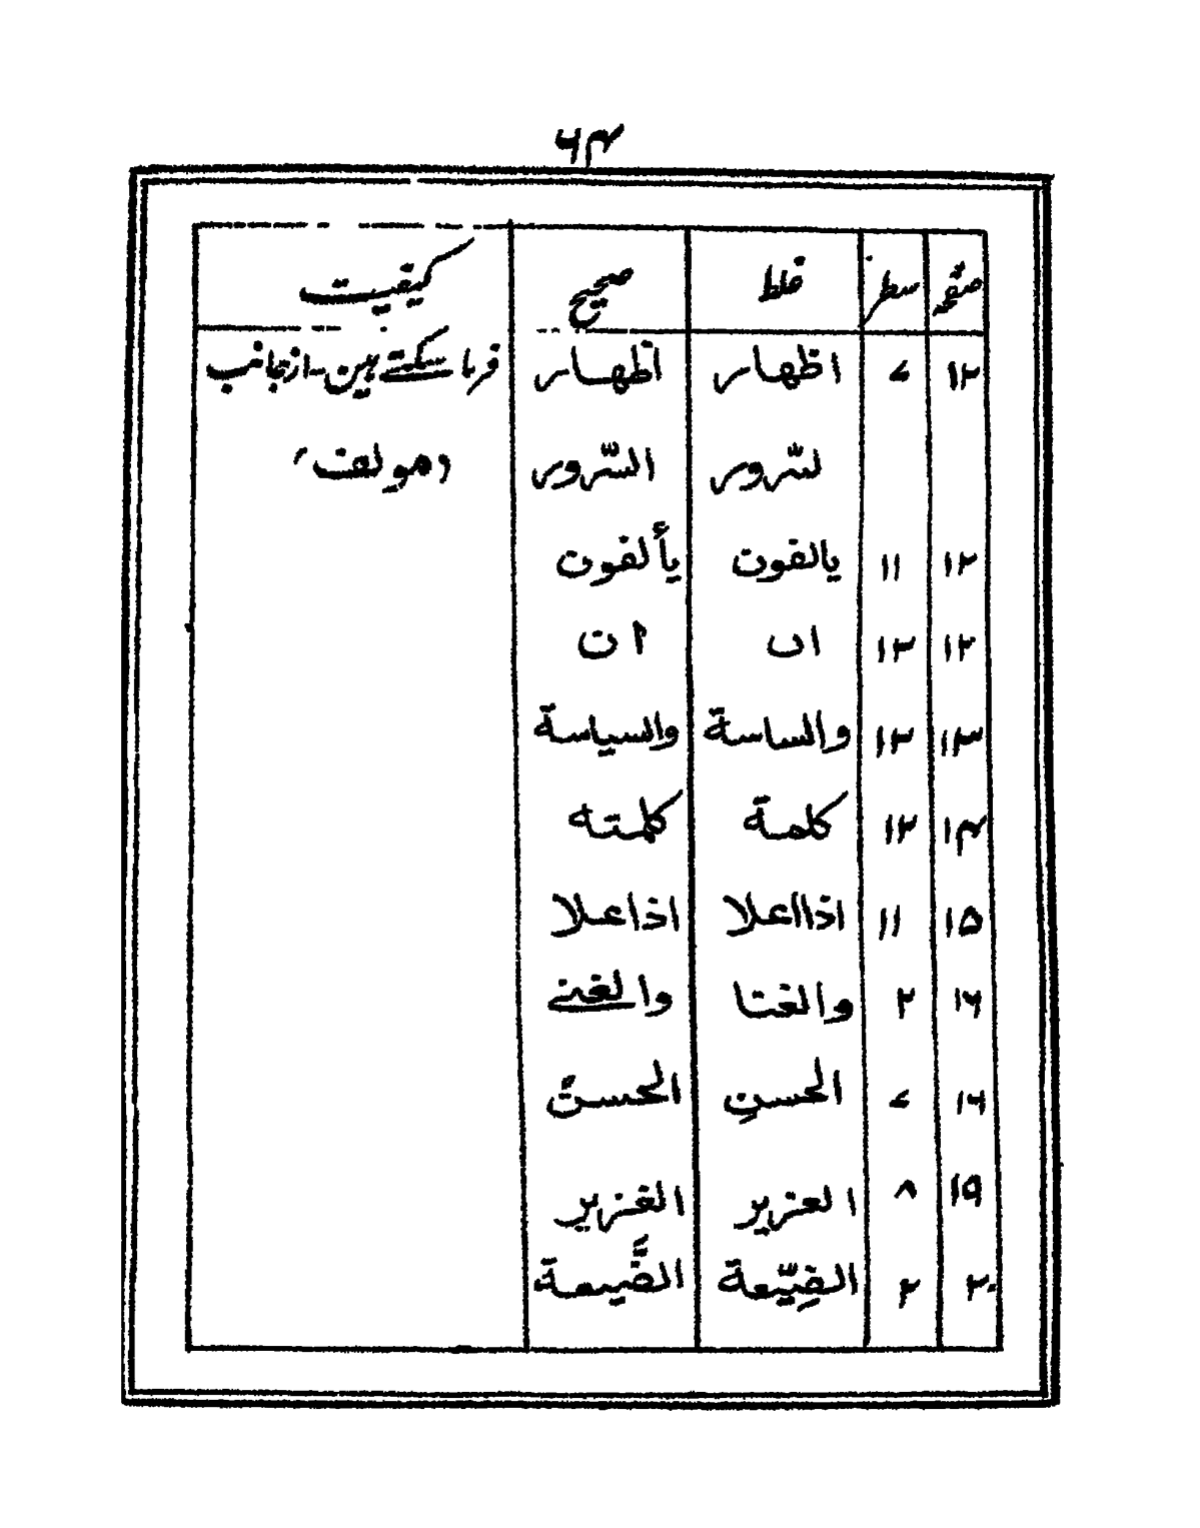 ۶۴
صفحہ سطر غلط صحیح کیفیت
۱۲ ۷ اظهار اظهار فرما سکتے ہین۔ از جانب
لسّرور السّرور (مولف)
۱۲ ۱۱ يالفون يألفون
۱۲ ۱۲ اں ان
۱۳ ۱۲ والساسة والسياسة
۱۴ ۱۲ كلمة كلمته
۱۵ ۱۱ اذااعلا اذاعلا
۱۶ ۲ والغنا والغنے
۱۶ ۷ الحسنِ الحسنَ
۱۹ ۸ العزير الغزير
۲۰ ۲ الضِيّعة الضَّيعة